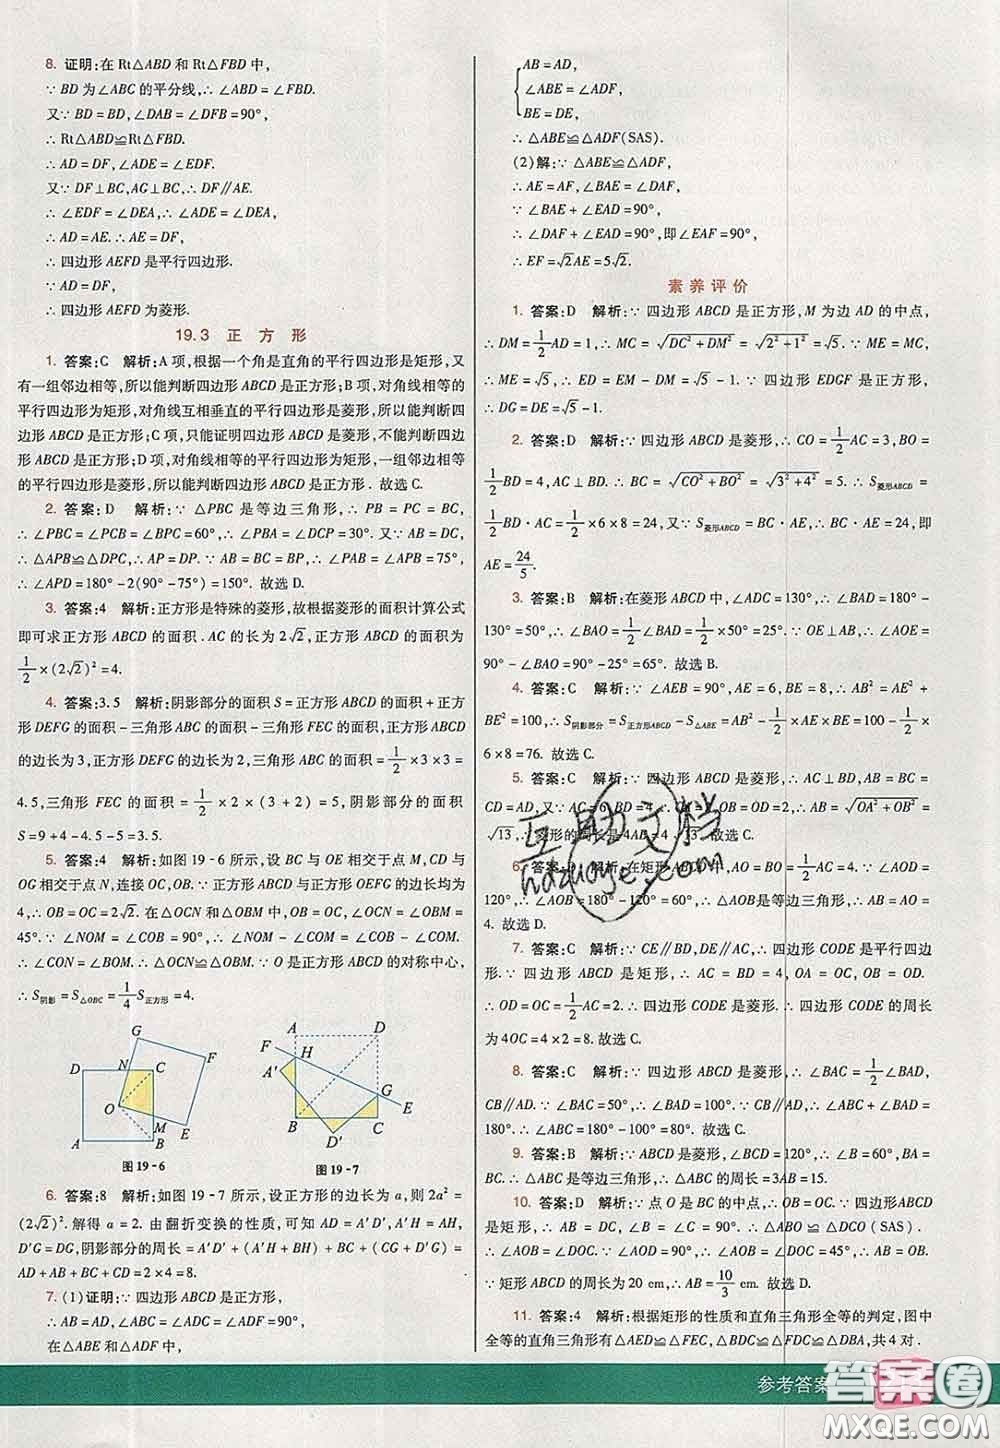 8. 证明:在 Rt△ABD 和 Rt△FBD 中,
∵ BD 为∠ABC 的平分线,∴ ∠ABD = ∠FBD.
又∵ BD = BD,∠DAB = ∠DFB = 90°,
∴ Rt△ABD≌Rt△FBD.
∴ AD = DF,∠ADE = ∠EDF.
又∵ DF⊥BC,AG⊥BC,∴ DF∥AE.
∴ ∠EDF = ∠DEA,∴ ∠ADE = ∠DEA,
∴ AD = AE.∴ AE = DF,
∴ 四边形 AEFD 是平行四边形.
∵ AD = DF,
∴ 四边形 AEFD 为菱形.
19.3 正 方 形
1. 答案:C 解析:A 项,根据一个角是直角的平行四边形是矩形,又
有一组邻边相等,所以能判断四边形 ABCD 是正方形;B 项,对角线相等的
平行四边形为矩形,对角线互相垂直的平行四边形是菱形,所以能判断四
边形 ABCD 是正方形;C 项,只能证明四边形 ABCD 是菱形,不能判断四边
形 ABCD 是正方形;D 项,对角线相等的平行四边形为矩形,一组邻边相等
的平行四边形是菱形,所以能判断四边形 ABCD 是正方形. 故选 C.
2. 答案:D 解析:∵ △PBC 是等边三角形,∴ PB = PC = BC,
∴ ∠PBC = ∠PCB = ∠BPC = 60°,∴ ∠PBA = ∠DCP = 30°. 又∵ AB = DC,
∴ △APB≌△DPC,∴ AP = DP. ∵ AB = BC = BP,∴ ∠APB = ∠PAB = 75°,
∴ ∠APD = 180° - 2(90° - 75°) = 150°. 故选 D.
3. 答案:4 解析:正方形是特殊的菱形,故根据菱形的面积计算公式
即可求正方形 ABCD 的面积. AC 的长为 2√2,∴ 正方形 ABCD 的面积为
1/2×(2√2)² = 4.
4. 答案:3.5 解析:阴影部分的面积 S = 正方形 ABCD 的面积 + 正方
形 DEFG 的面积 - 三角形 ABC 的面积 - 三角形 FEC 的面积,正方形 ABCD
的边长为 3,正方形 DEFG 的边长为 2,三角形 ABC 的面积 = 1/2×3×3 =
4.5,三角形 FEC 的面积 = 1/2×2×(3 + 2) = 5,阴影部分的面积
S = 9 + 4 - 4.5 - 5 = 3.5.
5. 答案:4 解析:如图 19 - 6 所示,设 BC 与 OE 相交于点 M,CD 与
OG 相交于点 N,连接 OC,OB. ∵ 正方形 ABCD 和正方形 OEFG 的边长均为
4,∴ OB = OC = 2√2. 在△OCN 和△OBM 中,∠OCN = ∠OBM =
45°. ∵ ∠NOM = ∠COB = 90°,∴ ∠NOM - ∠COM = ∠COB - ∠COM,
∴ ∠CON = ∠BOM. ∴ △OCN≌△OBM. ∵ O 是正方形 ABCD 的对称中心,
∴ S阴影 = S△OBC = 1/4 S正方形 = 4.
G
F
D
N
C
O
M
E
A
B
图 19 - 6
A
D
F
H
A′
G
E
B
C
D′
图 19 - 7
6. 答案:8 解析:如图 19 - 7 所示,设正方形的边长为 a,则 2a² =
(2√2)². 解得 a = 2. 由翻折变换的性质,可知 AD = A′D′,A′H = AH,
D′G = DG,阴影部分的周长 = A′D′ + (A′H + BH) + BC + (CG + D′G) =
AD + AB + BC + CD = 2×4 = 8.
7. (1)证明:∵ 四边形 ABCD 是正方形,
∴ AB = AD,∠ABC = ∠D = ∠ABE = 90°.
在△ABE 和△ADF 中,
AB = AD,
∠ABE = ∠ADF,
BE = DE,
∴ △ABE≌△ADF(SAS).
(2)解:∵ △ABE≌△ADF,
∴ AE = AF,∠BAE = ∠DAF,
∵ ∠BAE + ∠EAD = 90°,
∴ ∠DAF + ∠EAD = 90°,即∠EAF = 90°,
∴ EF = √2AE = 5√2.
素养评价
1. 答案:D 解析:∵ 四边形 ABCD 是正方形,M 为边 AD 的中点,
∴ DM = 1/2 AD = 1/2 DC = 1. ∴ MC = √(DC² + DM²) = √(2² + 1²) = √5. ∵ ME = MC,
∴ ME = √5,∴ ED = EM - DM = √5 - 1. ∵ 四边形 EDGF 是正方形,
∴ DG = DE = √5 - 1.
2. 答案:D 解析:∵ 四边形 ABCD 是菱形,∴ CO = 1/2 AC = 3,BO =
1/2 BD = 4,AC⊥BD. ∴ BC = √(CO² + BO²) = √(3² + 4²) = 5. ∴ S菱形ABCD =
1/2 BD·AC = 1/2×6×8 = 24,又∵ S菱形ABCD = BC·AE,∴ BC·AE = 24,即
AE = 24/5.
3. 答案:B 解析:在菱形 ABCD 中,∠ADC = 130°,∴ ∠BAD = 180° -
130° = 50°,∴ ∠BAO = 1/2∠BAD = 1/2×50° = 25°. ∵ OE⊥AB,∴ ∠AOE =
90° - ∠BAO = 90° - 25° = 65°. 故选 B.
4. 答案:C 解析:∵ ∠AEB = 90°,AE = 6,BE = 8,∴ AB² = AE² +
BE² = 100,∴ S阴影部分 = S正方形ABCD - S△ABE = AB² - 1/2×AE×BE = 100 - 1/2×
6×8 = 76. 故选 C.
5. 答案:C 解析:∵ 四边形 ABCD 是菱形,∴ AC⊥BD,AB = BC =
CD = AD, 又∵ AC = 6, BD = 4,∴ AO = CO = 3,BO = DO = 2,∴ AB = √(OA² + OB²) =
√13,∴ 菱形的周长是 4AB = 4√13. 故选 C.
6. 答案:D 解析:在矩形 ABCD 中,AO = BO = 1/2 AC = 4. ∵ ∠AOD =
120°,∴ ∠AOB = 180° - 120° = 60°,∴ △AOB 是等边三角形,∴ AB = AO =
4. 故选 D.
7. 答案:C 解析:∵ CE∥BD,DE∥AC,∴ 四边形 CODE 是平行四边
形. ∵ 四边形 ABCD 是矩形,∴ AC = BD = 4,OA = OC,OB = OD.
∴ OD = OC = 1/2 AC = 2. ∴ 四边形 CODE 是菱形,∴ 四边形 CODE 的周长
为 4OC = 4×2 = 8. 故选 C.
8. 答案:C 解析:∵ 四边形 ABCD 是菱形,∴ ∠BAC = 1/2∠BAD,
CB∥AD. ∵ ∠BAC = 50°,∴ ∠BAD = 100°. ∵ CB∥AD,∴ ∠ABC + ∠BAD =
180°. ∴ ∠ABC = 180° - 100° = 80°. 故选 C.
9. 答案:B 解析:∵ ABCD 是菱形,∠BCD = 120°,∴ ∠B = 60°,
BA = BC. ∴ △ABC 是等边三角形,∴ △ABC 的周长 = 3AB = 15.
10. 答案:D 解析:∵ 点 O 是 BC 的中点,∴ OB = OC. ∵ 四边形ABCD
是矩形,∴ AB = DC,∠B = ∠C = 90°. ∴ △ABO≌△DCO(SAS).
∴ ∠AOB = ∠DOC. ∵ ∠AOD = 90°,∴ ∠AOB = ∠DOC = 45°,∴ AB = OB.
∵ 矩形 ABCD 的周长为 20 cm,∴ AB = 10/3 cm. 故选 D.
11. 答案:4 解析:根据矩形的性质和直角三角形全等的判定,图中
全等的直角三角形有△AED≌△FEC,△BDC≌△FDC≌△DBA,共 4 对.
互助文档
hdzuoye.com
参考答案
答案圈
MXQE.COM